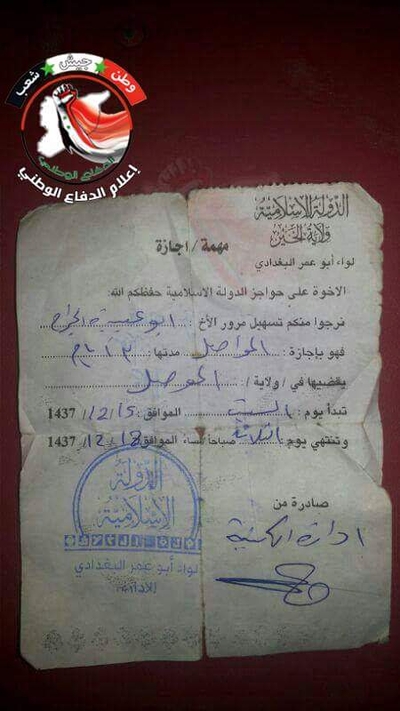 وطن جيش شعب
الدفاع الوطني
إعلام الدفاع الوطني
الدولة الإسلامية
ولاية الخير
مهمة / اجازة
لواء أبو عمر البغدادي
الاخوة على حواجز الدولة الاسلامية حفظكم الله:
نرجوا منكم تسهيل مرور الأخ : ابو عبيدة الجراح
فهو بإجازة : مدتها: ٣ ايام
يقضيها في / ولاية / الموصل
تبدأ يوم : السبت الموافق: 12/15/ 1437
وتنتهي يوم: صباحاً/مساءً الموافق: 12/18/ 1437
صادرة من
ادارة
الدولة
الإسلامية
لواء أبو عمر البغدادي